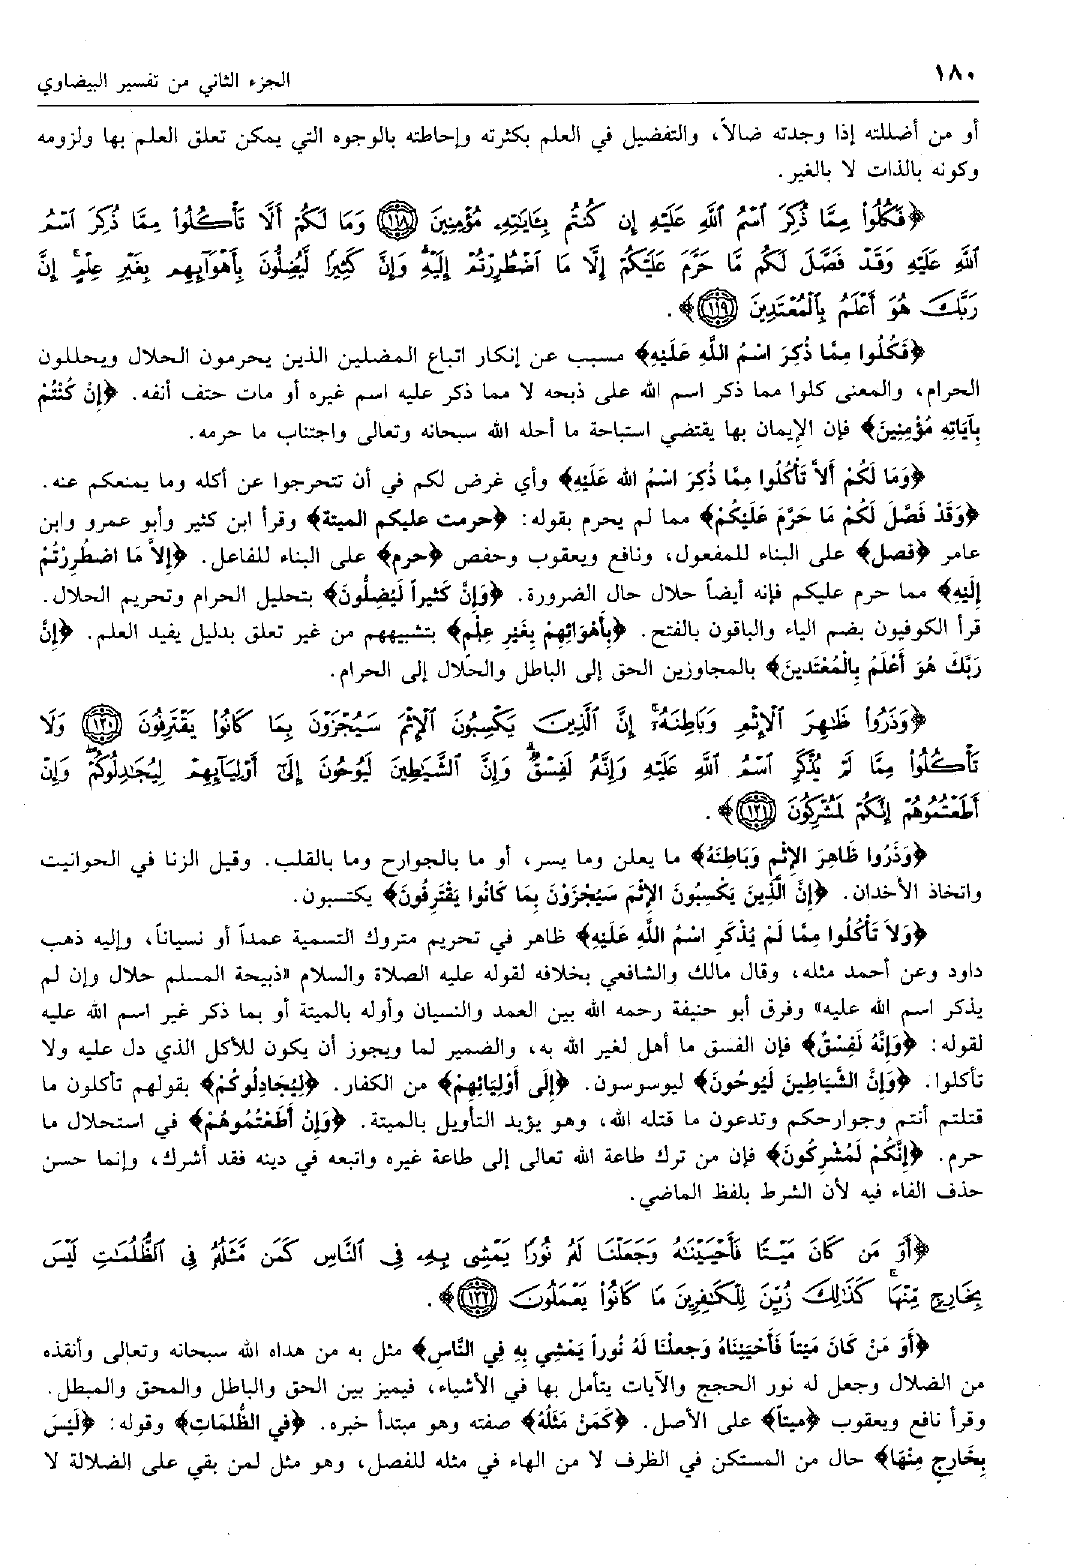 ١٨٠
الجزء الثاني من تفسير البيضاوي
أو من أضللته إذا وجدته ضالاً، والتفضيل في العلم بكثرته وإحاطته بالوجوه التي يمكن تعلق العلم بها ولزومه
وكونه بالذات لا بالغير.
﴿فَكُلُوا۟ مِمَّا ذُكِرَ ٱسْمُ ٱللَّهِ عَلَيْهِ إِن كُنتُم بِـَٔايَٰتِهِۦ مُؤْمِنِينَ ۝١١٨ وَمَا لَكُمْ أَلَّا تَأْكُلُوا۟ مِمَّا ذُكِرَ ٱسْمُ
ٱللَّهِ عَلَيْهِ وَقَدْ فَصَّلَ لَكُم مَّا حَرَّمَ عَلَيْكُمْ إِلَّا مَا ٱضْطُرِرْتُمْ إِلَيْهِ ۗ وَإِنَّ كَثِيرًا لَّيُضِلُّونَ بِأَهْوَآئِهِم بِغَيْرِ عِلْمٍ ۗ إِنَّ
رَبَّكَ هُوَ أَعْلَمُ بِٱلْمُعْتَدِينَ ۝١١٩﴾.
﴿فَكُلُوا مِمَّا ذُكِرَ اسْمُ اللَّهِ عَلَيْهِ﴾ مسبب عن إنكار اتباع المضلين الذين يحرمون الحلال ويحللون
الحرام، والمعنى كلوا مما ذكر اسم الله على ذبحه لا مما ذكر عليه اسم غيره أو مات حتف أنفه. ﴿إِنْ كُنْتُمْ
بِآيَاتِهِ مُؤْمِنِينَ﴾ فإن الإِيمان بها يقتضي استباحة ما أحله الله سبحانه وتعالى واجتناب ما حرمه.
﴿وَمَا لَكُمْ أَلاَّ تَأْكُلُوا مِمَّا ذُكِرَ اسْمُ الله عَلَيْهِ﴾ وأي غرض لكم في أن تتحرجوا عن أكله وما يمنعكم عنه.
﴿وَقَدْ فَصَّلَ لَكُمْ مَا حَرَّمَ عَلَيْكُمْ﴾ مما لم يحرم بقوله: ﴿حرمت عليكم الميتة﴾ وقرأ ابن كثير وأبو عمرو وابن
عامر ﴿فصل﴾ على البناء للمفعول، ونافع ويعقوب وحفص ﴿حرم﴾ على البناء للفاعل. ﴿إِلاَّ مَا اضطُرِرْتُمْ
إِلَيْهِ﴾ مما حرم عليكم فإنه أيضاً حلال حال الضرورة. ﴿وَإِنَّ كَثِيراً لَيُضِلُّونَ﴾ بتحليل الحرام وتحريم الحلال.
قرأ الكوفيون بضم الياء والباقون بالفتح. ﴿بِأَهْوَائِهِمْ بِغَيْرِ عِلْمٍ﴾ بتشبيههم من غير تعلق بدليل يفيد العلم. ﴿إِنَّ
رَبَّكَ هُوَ أَعْلَمُ بِالْمُعْتَدينَ﴾ بالمجاوزين الحق إلى الباطل والحلال إلى الحرام.
﴿وَذَرُوا۟ ظَٰهِرَ ٱلْإِثْمِ وَبَاطِنَهُۥٓ ۚ إِنَّ ٱلَّذِينَ يَكْسِبُونَ ٱلْإِثْمَ سَيُجْزَوْنَ بِمَا كَانُوا۟ يَقْتَرِفُونَ ۝١٢٠ وَلَا
تَأْكُلُوا۟ مِمَّا لَمْ يُذْكَرِ ٱسْمُ ٱللَّهِ عَلَيْهِ وَإِنَّهُۥ لَفِسْقٌ ۗ وَإِنَّ ٱلشَّيَٰطِينَ لَيُوحُونَ إِلَىٰٓ أَوْلِيَآئِهِمْ لِيُجَٰدِلُوكُمْ ۖ وَإِنْ
أَطَعْتُمُوهُمْ إِنَّكُمْ لَمُشْرِكُونَ ۝١٢١﴾.
﴿وَذَرُوا ظَاهِرَ الإِثْمِ وَبَاطِنَهُ﴾ ما يعلن وما يسر، أو ما بالجوارح وما بالقلب. وقيل الزنا في الحوانيت
واتخاذ الأخدان. ﴿إِنَّ الَّذِينَ يَكْسِبُونَ الإِثْمَ سَيُجْزَوْنَ بِمَا كَانُوا يَقْتَرِفُونَ﴾ يكتسبون.
﴿وَلاَ تَأْكُلُوا مِمَّا لَمْ يُذْكَرِ اسْمُ اللَّهِ عَلَيْهِ﴾ ظاهر في تحريم متروك التسمية عمداً أو نسياناً، وإليه ذهب
داود وعن أحمد مثله، وقال مالك والشافعي بخلافه لقوله عليه الصلاة والسلام «ذبيحة المسلم حلال وإن لم
يذكر اسم الله عليه» وفرق أبو حنيفة رحمه الله بين العمد والنسيان وأوله بالميتة أو بما ذكر غير اسم الله عليه
لقوله: ﴿وَإِنَّهُ لَفِسْقٌ﴾ فإن الفسق ما أهل لغير الله به، والضمير لما ويجوز أن يكون للأكل الذي دل عليه ولا
تأكلوا. ﴿وَإِنَّ الشَّيَاطِينَ لَيُوحُونَ﴾ ليوسوسون. ﴿إِلَى أَوْلِيَائِهِمْ﴾ من الكفار. ﴿لِيُجَادِلُوكُمْ﴾ بقولهم تأكلون ما
قتلتم أنتم وجوارحكم وتدعون ما قتله الله، وهو يؤيد التأويل بالميتة. ﴿وَإِنْ أَطَعْتُمُوهُمْ﴾ في استحلال ما
حرم. ﴿إِنَّكُمْ لَمُشْرِكُونَ﴾ فإن من ترك طاعة الله تعالى إلى طاعة غيره واتبعه في دينه فقد أشرك، وإنما حسن
حذف الفاء فيه لأن الشرط بلفظ الماضي.
﴿أَوَ مَن كَانَ مَيْتًا فَأَحْيَيْنَٰهُ وَجَعَلْنَا لَهُۥ نُورًا يَمْشِى بِهِۦ فِى ٱلنَّاسِ كَمَن مَّثَلُهُۥ فِى ٱلظُّلُمَٰتِ لَيْسَ
بِخَارِجٍ مِّنْهَا ۚ كَذَٰلِكَ زُيِّنَ لِلْكَٰفِرِينَ مَا كَانُوا۟ يَعْمَلُونَ ۝١٢٢﴾.
﴿أَوَ مَنْ كَانَ مَيْتاً فَأَحْيَيْنَاهُ وَجَعلْنَا لَهُ نُوراً يَمْشِي بِهِ فِي النَّاسِ﴾ مثل به من هداه الله سبحانه وتعالى وأنقذه
من الضلال وجعل له نور الحجج والآيات يتأمل بها في الأشياء، فيميز بين الحق والباطل والمحق والمبطل.
وقرأ نافع ويعقوب ﴿ميتاً﴾ على الأصل. ﴿كَمَنْ مَثَلُهُ﴾ صفته وهو مبتدأ خبره. ﴿في الظُّلمَاتِ﴾ وقوله: ﴿لَيْسَ
بِخَارِجٍ مِنْهَا﴾ حال من المستكن في الظرف لا من الهاء في مثله للفصل، وهو مثل لمن بقي على الضلالة لا